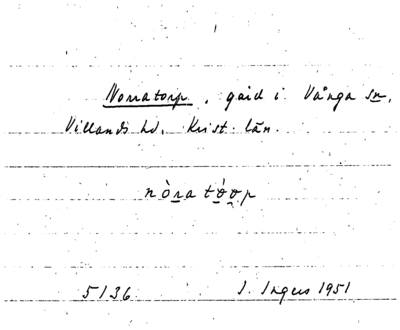 Norratorp, gård i Vånga sn,
Villands hd. Krist. län.
nòra tóop
5136 I. Ingers 1951